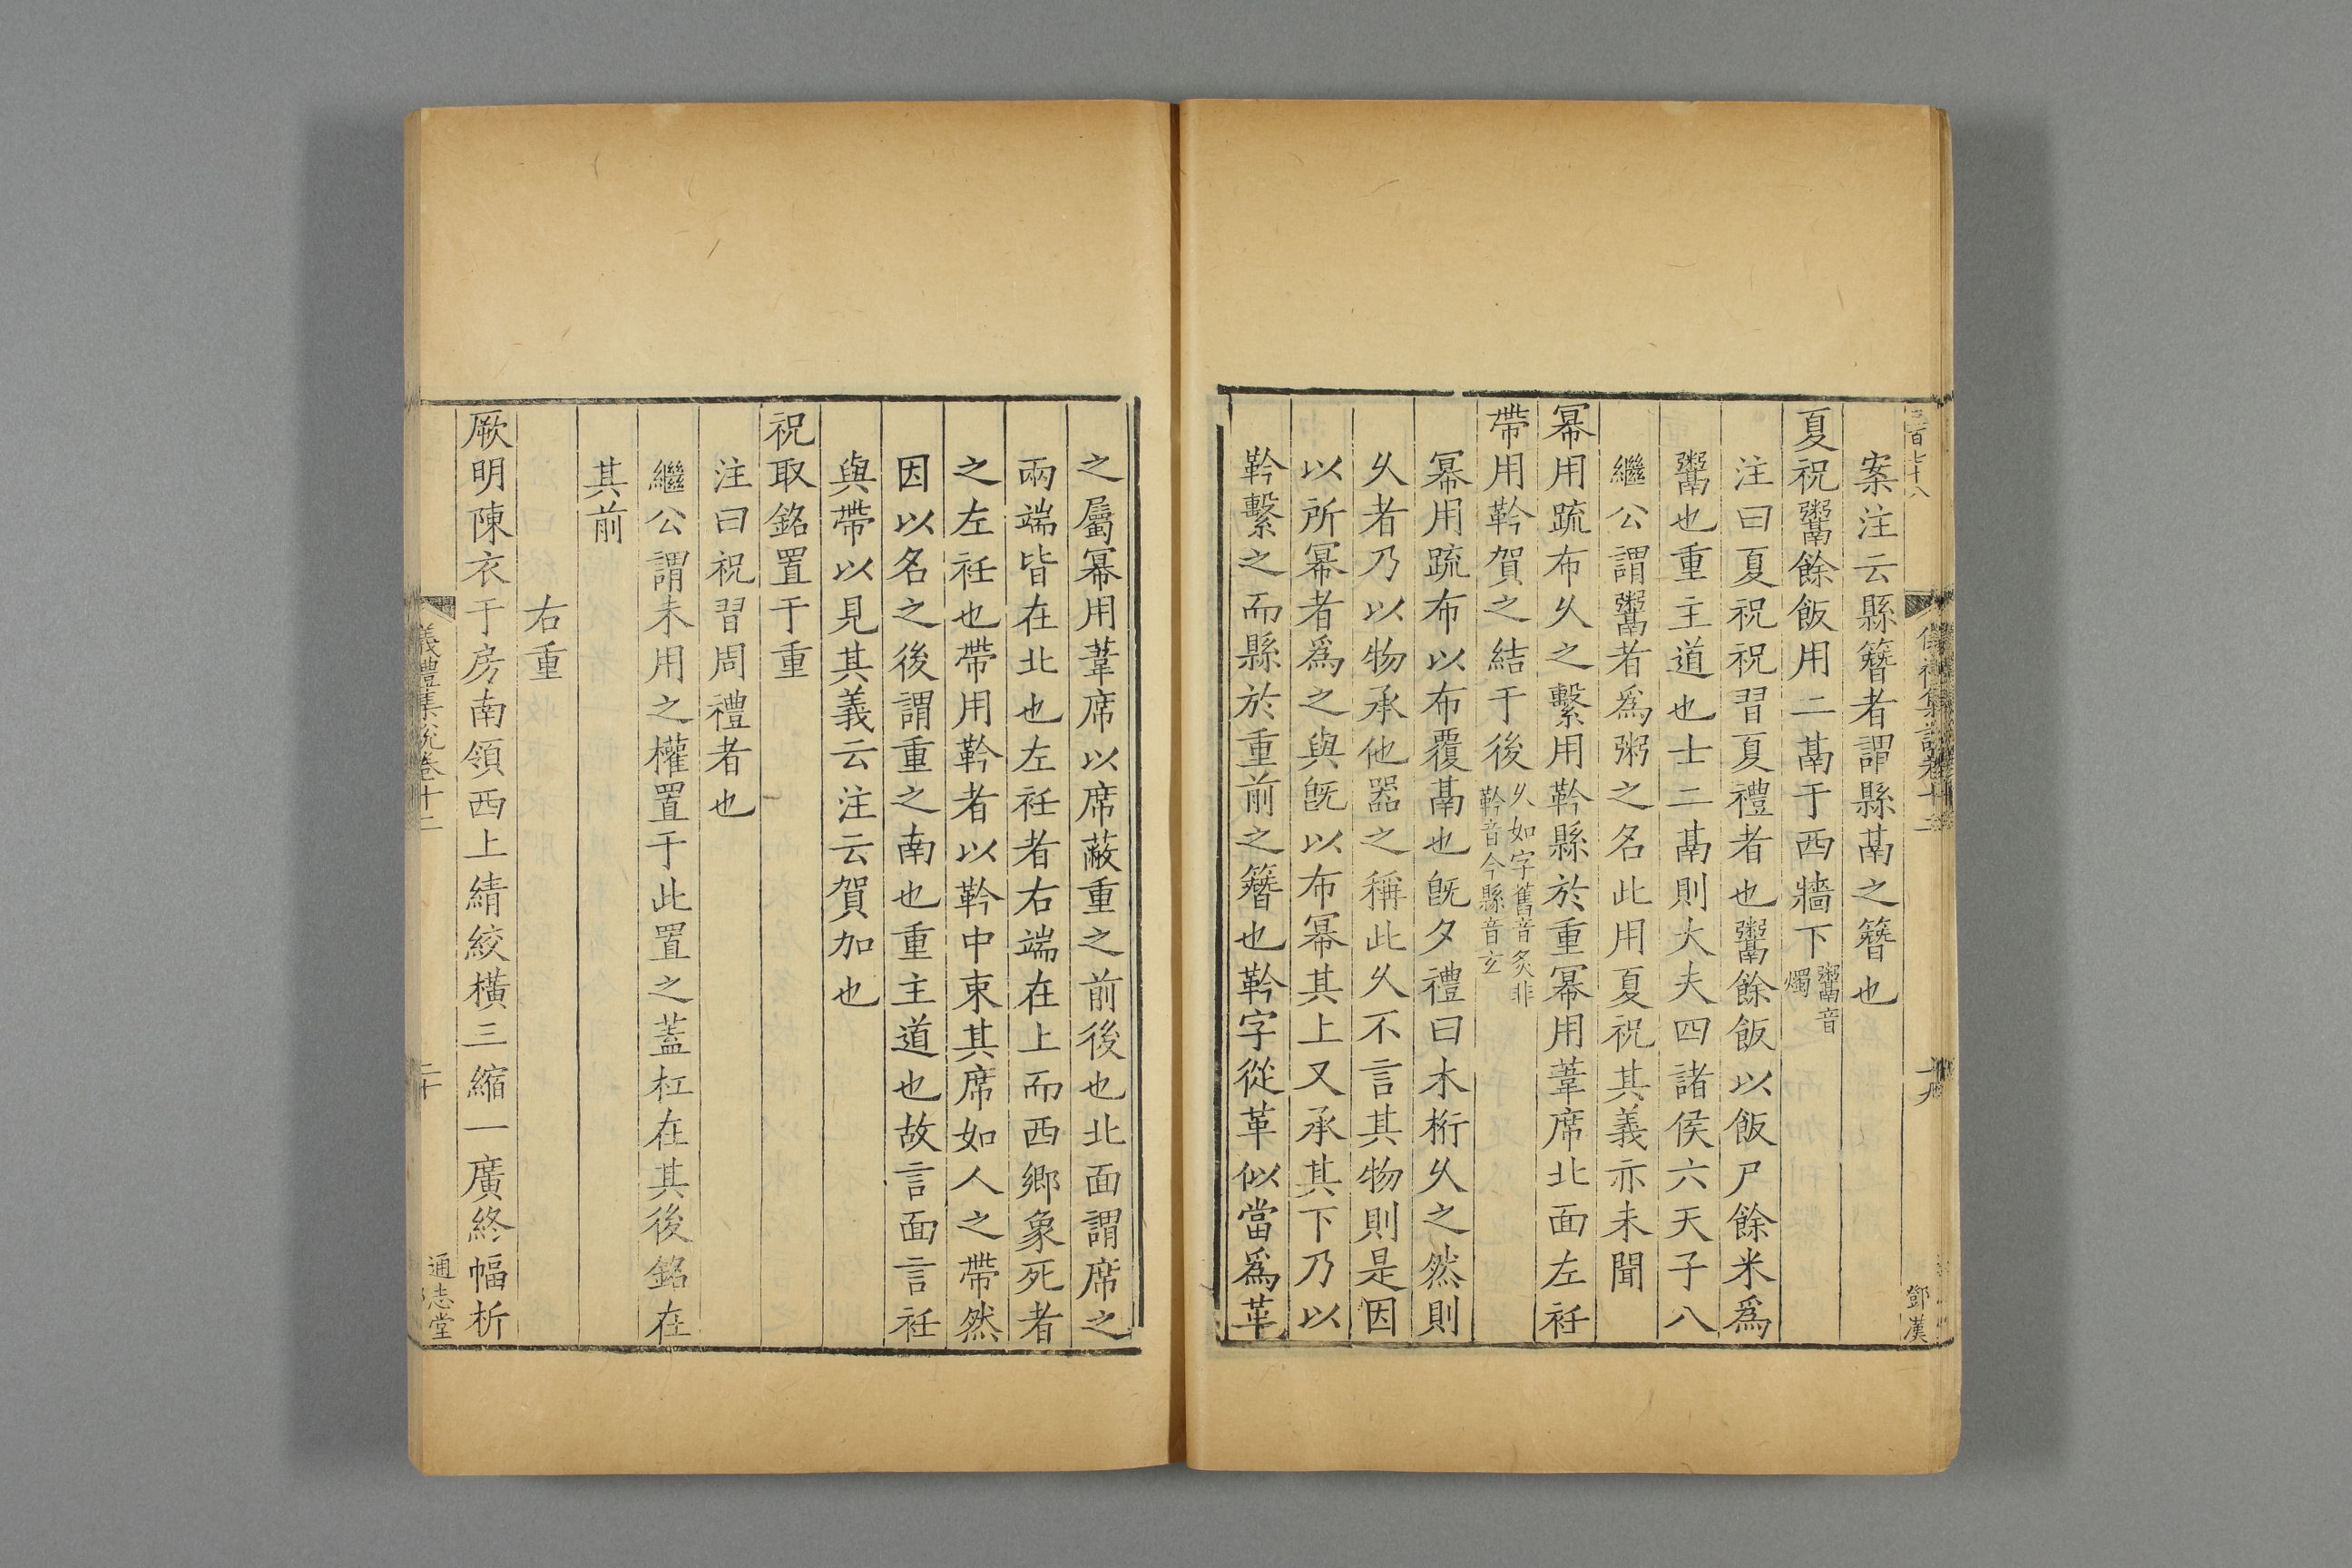 三百七十八
儀禮集說卷十二
十九
鄧漢
案注云縣簪者謂縣鬲之簪也
夏祝鬻餘飯用二鬲于西牆下鬻音燭
注曰夏祝祝習夏禮者也鬻餘飯以飯尸餘米爲
鬻也重主道也士二鬲則大夫四諸侯六天子八
繼公謂鬻者爲粥之名此用夏祝其義亦未聞
幂用疏布久之繫用靲縣於重幂用葦席北面左衽
帶用靲賀之結于後久如字舊音灸非靲音今縣音玄
幂用疏布以布覆鬲也旣夕禮曰木桁久之然則
久者乃以物承他器之稱此久不言其物則是因
以所幂者爲之與旣以布幂其上又承其下乃以
靲繫之而縣於重前之簪也靲字從革似當爲革
之屬幂用葦席以席蔽重之前後也北面謂席之
兩端皆在北也左衽者右端在上而西鄉象死者
之左衽也帶用靲者以靲中束其席如人之帶然
因以名之後謂重之南也重主道也故言面言衽
與帶以見其義云注云賀加也
祝取銘置于重
注曰祝習周禮者也
繼公謂未用之權置于此置之蓋杠在其後銘在
其前
右重
厥明陳衣于房南領西上綪絞橫三縮一廣終幅析
儀禮集說卷十二
二十
通志堂